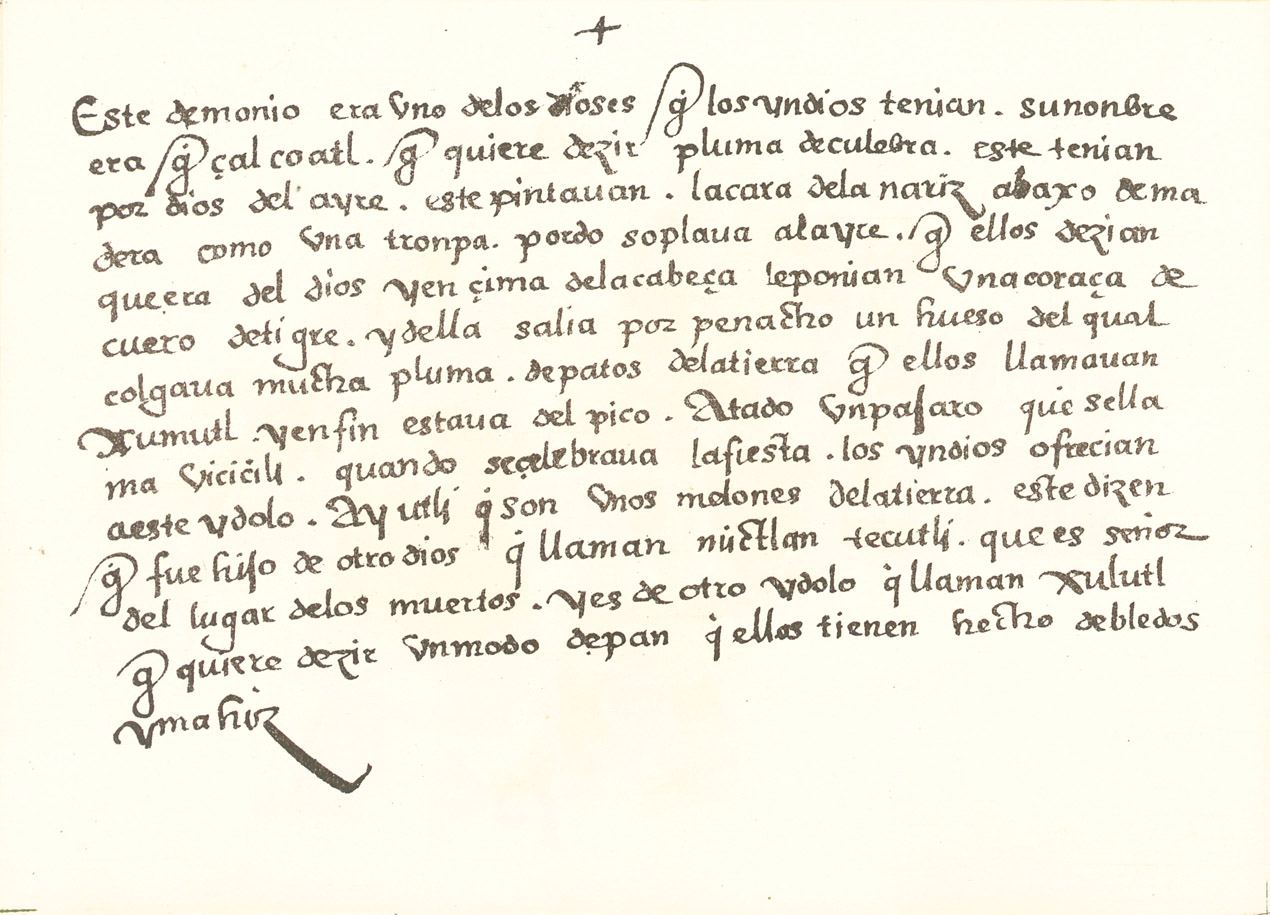 +
Este demonio era vno delos dioses q̃ los yndios tenian. sunonbre
era q̃ çal coatl. q̃ quiere dezir pluma deculebra. este tenian
por dios del ayre. este pintauan. lacara dela nariz abaxo de ma
dera como vna tronpa. pordo soplaua alayre. q̃ ellos dezian
queera del dios yen çima delacabeça leponian vnacoraça de
cuero detigre. ydella salia por penacho un hueso del qual
colgaua mucha pluma. depatos delatierra q̃ ellos llamauan
Xumutl. yenfin estaua del pico. Atado vnpaſaro que sella
ma viciçili. quando seçelebraua lafiesta. los yndios ofrecian
aeste ydolo. Ayutli q̃ son vnos melones delatierra. este dizen
q̃ fue hiſo de otro dios q̃ llaman mictlan tecutli. que es señor
del lugar delos muertos. yes de otro ydolo q̃ llaman Xulutl
q̃ quiere dezir vnmodo depan q̃ ellos tienen hecho debledos
ymahiz